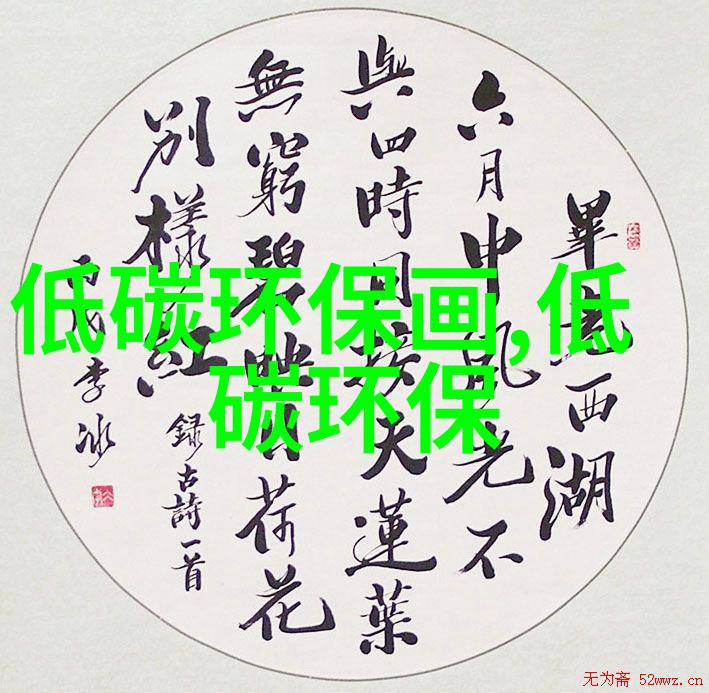 畢竟西湖
六月中風光不
與四時同接天蓮葉
無窮碧映日荷花
別樣紅
錄古詩一首
丙戌李冰
低碳环保画,低
碳环保
无为斋 52wwz.cn